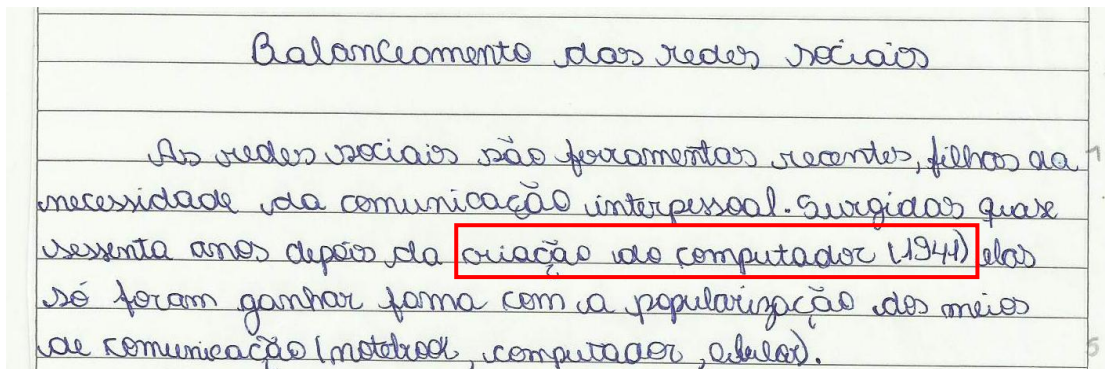 Balanceamento das redes sociais
As redes sociais são ferramentas recentes, filhas da
necessidade da comunicação interpessoal. Surgidas quase
sessenta anos depois da criação do computador (1941) elas
só foram ganhar fama com a popularização dos meios
de comunicação (notebook, computador, celular).
1
5